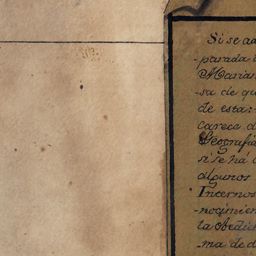 Si se a
-parada
Maria
-sa de qu
de esta
careca d
Geografia
si se há
algunos
Internos
-nocimien
la
-ma de d